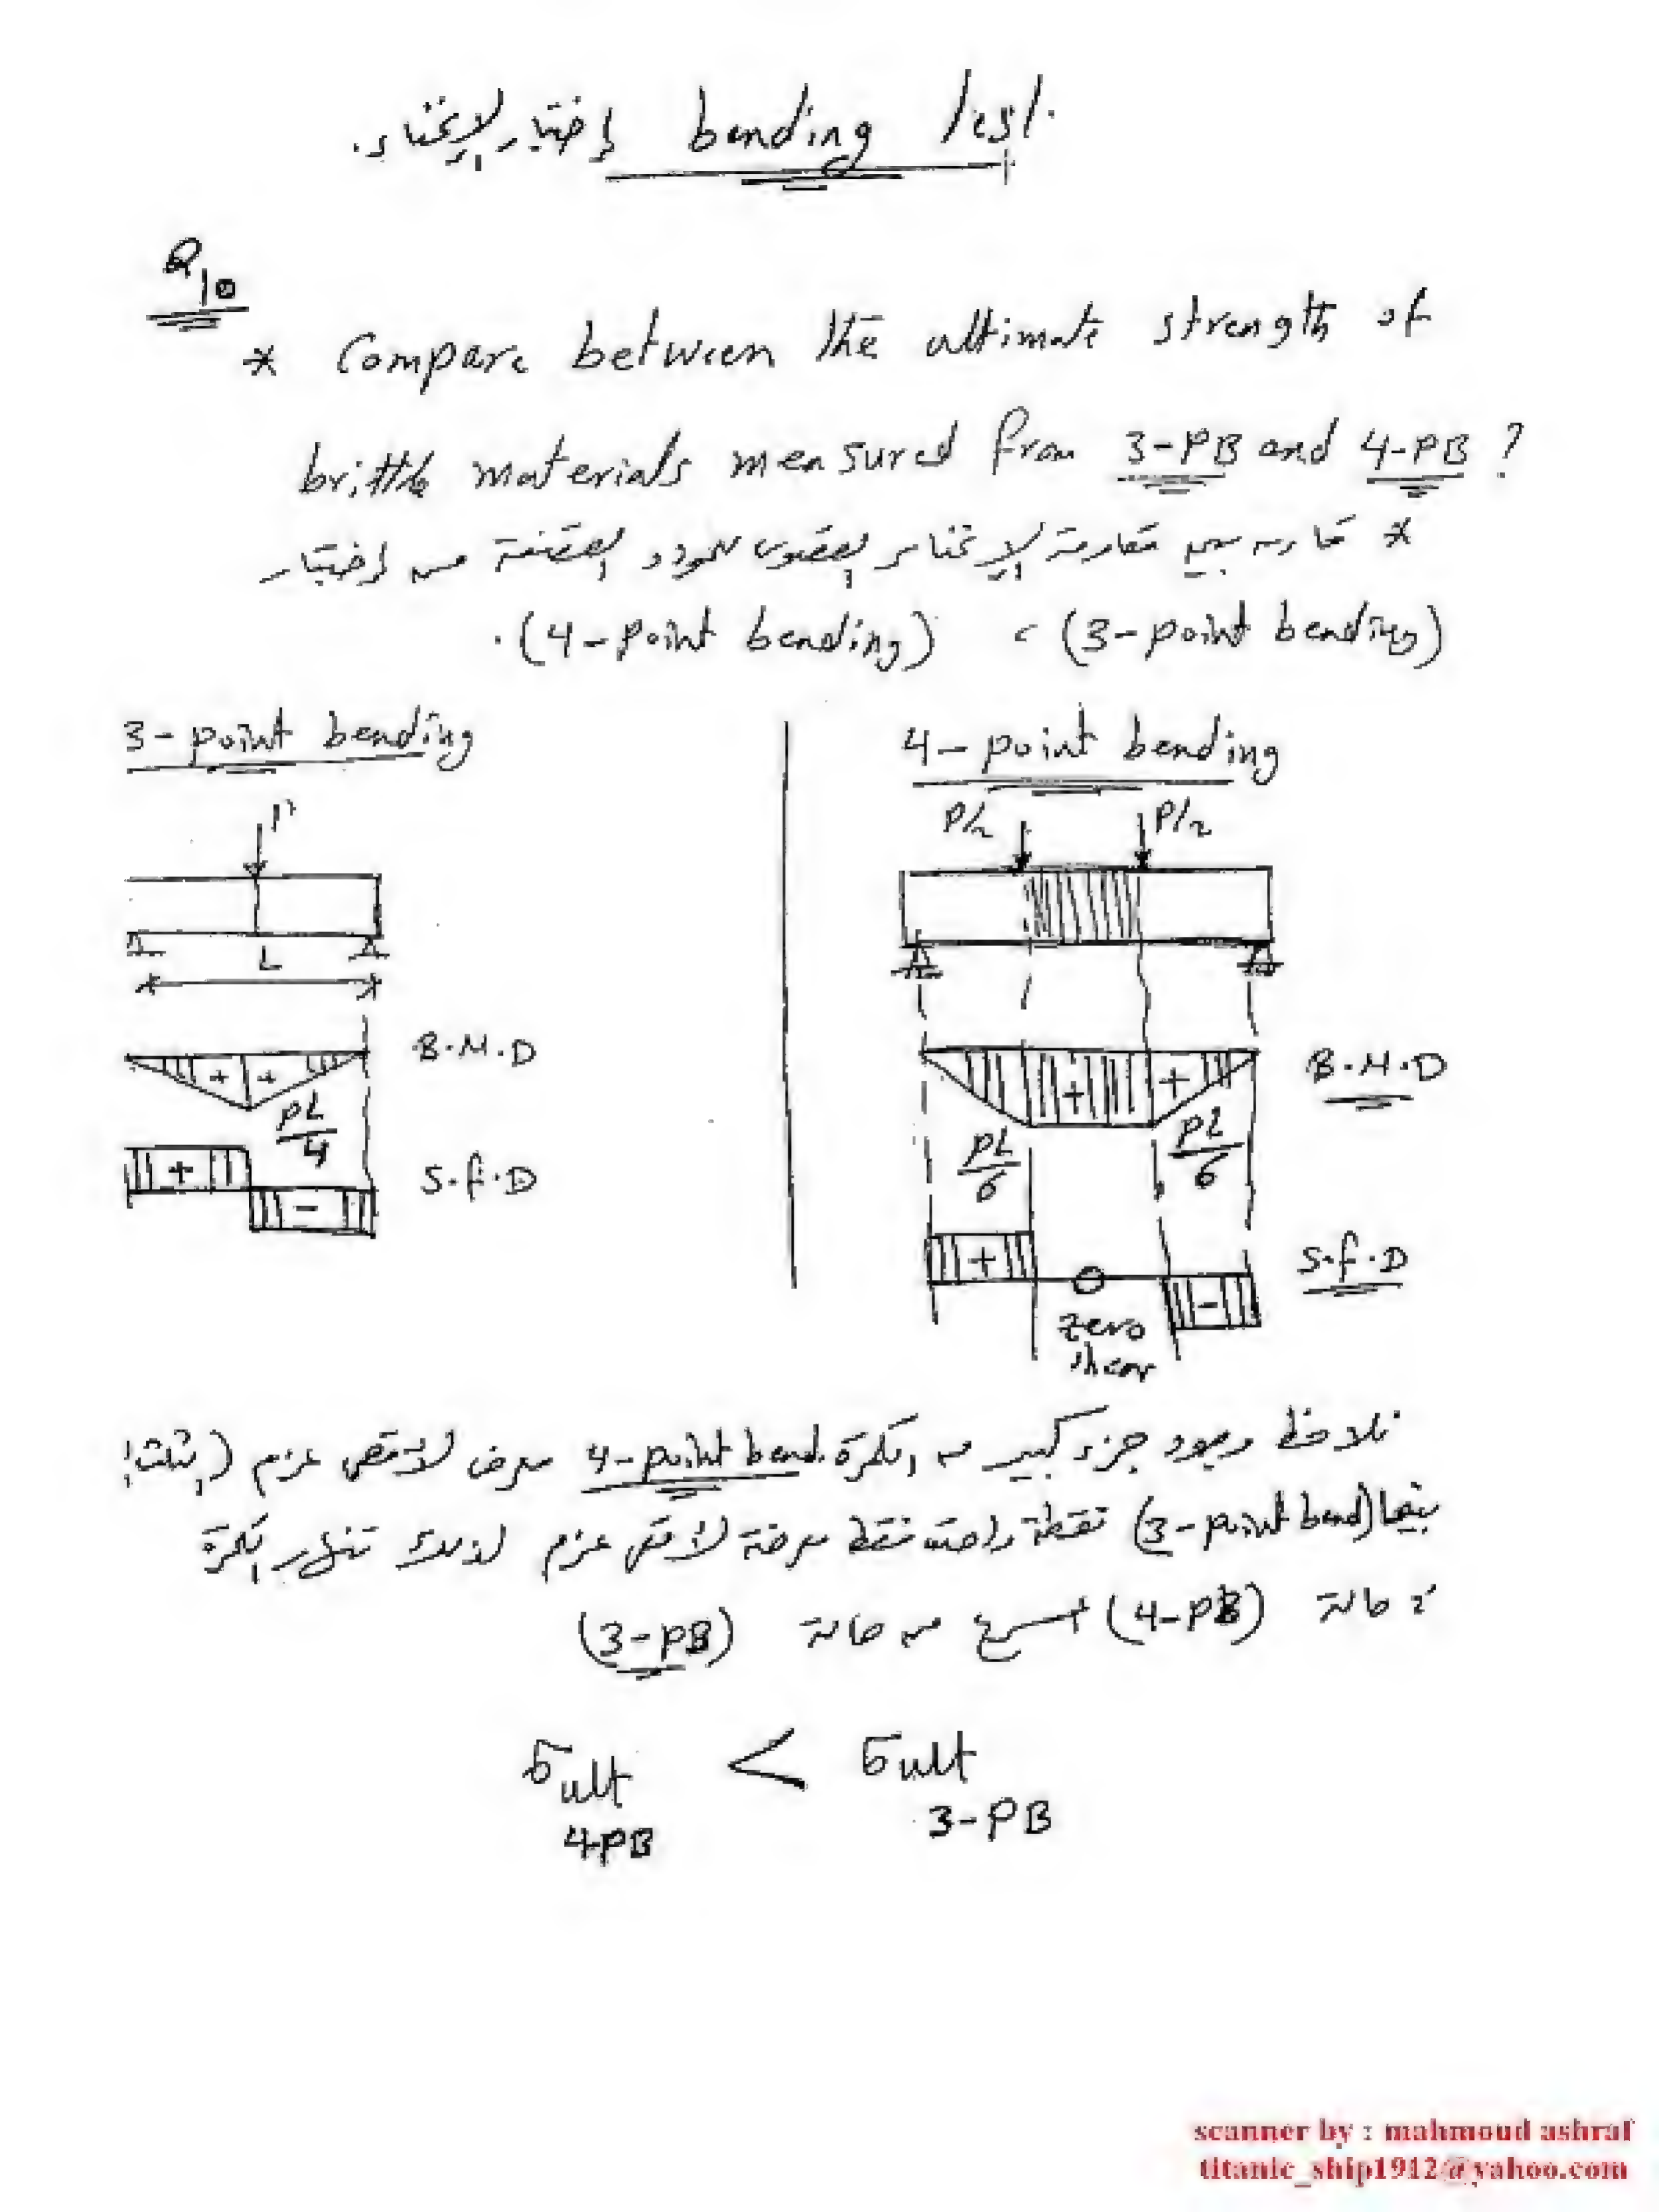 إختبار الإنحناء. bending test.
Q10
* Compare between the ultimate strength of
brittle materials measured from 3-PB and 4-PB ?
* قارن بين مقاومة الإنحناء القصوى للمواد القصفة من إختبار
(3-point bending) ، (4-point bending).
3-point bending
P
L
B.M.D
+ +
PL/4
S.F.D
+
-
4-point bending
P/2 P/2
B.M.D
+ +
PL/6 PL/6
S.F.D
+
-
zero
shear
نلاحظ وجود جزء كبير من الكمرة 4-point bend. معرض لأقصى عزم (الثلث)
بينما (3-point bend) نقطة واحدة فقط معرضة لأقصى عزم لذلك تنهار الكمرة
في حالة (4-PB) أسرع من حالة (3-PB)
σult 4PB < σult 3-PB
scanner by : mahmoud ashraf
titanic_ship1912@yahoo.com